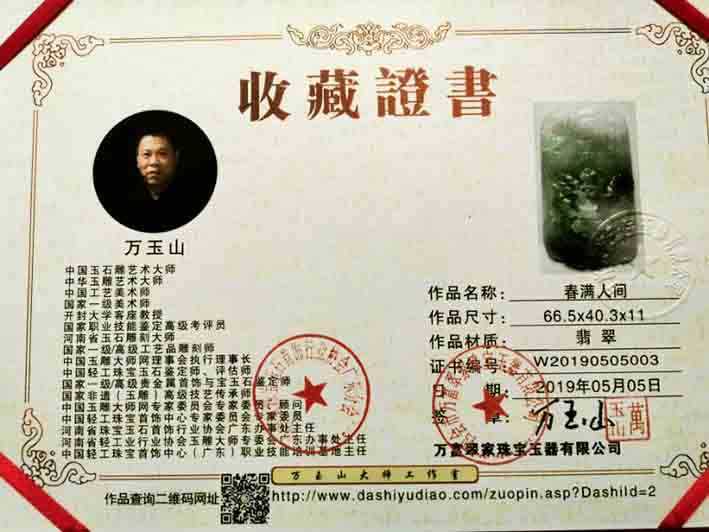 收藏證書
万玉山
中国玉石雕艺术大师
中华玉雕艺术大师
中国工艺美术师
国家一级美术师
开封大学客座教授
国家职业技能鉴定高级考评员
河南省玉石雕刻大师
国家一级/高级工艺品雕刻师
中国玉雕大师网理事会执行理事长
中国轻工珠宝玉石鉴定师、评估师
国家一级/高级贵金属首饰与宝玉石鉴定师
国家非遗（玉雕）高级技艺传承师
中国玉雕大师网专家委员会专家委员、顾问
中国轻工珠宝首饰中心专家委员会专家委员
河南省珠宝玉石首饰行业协会广东办事处主任
河南省轻工业行业协会玉雕大师专委会广东办事处主任
中国轻工珠宝首饰中心（广东）职业技能培训基地主任
作品名称: 春满人间
作品尺寸: 66.5x40.3x11
作品材质: 翡翠
证书编号: W20190505003
日期: 2019年05月05日
签章: 万玉山
萬玉山
万富翠家珠宝玉器有限公司
万玉山大师工作室
作品查询二维码网址
http://www.dashiyudiao.com/zuopin.asp?DashiId=2